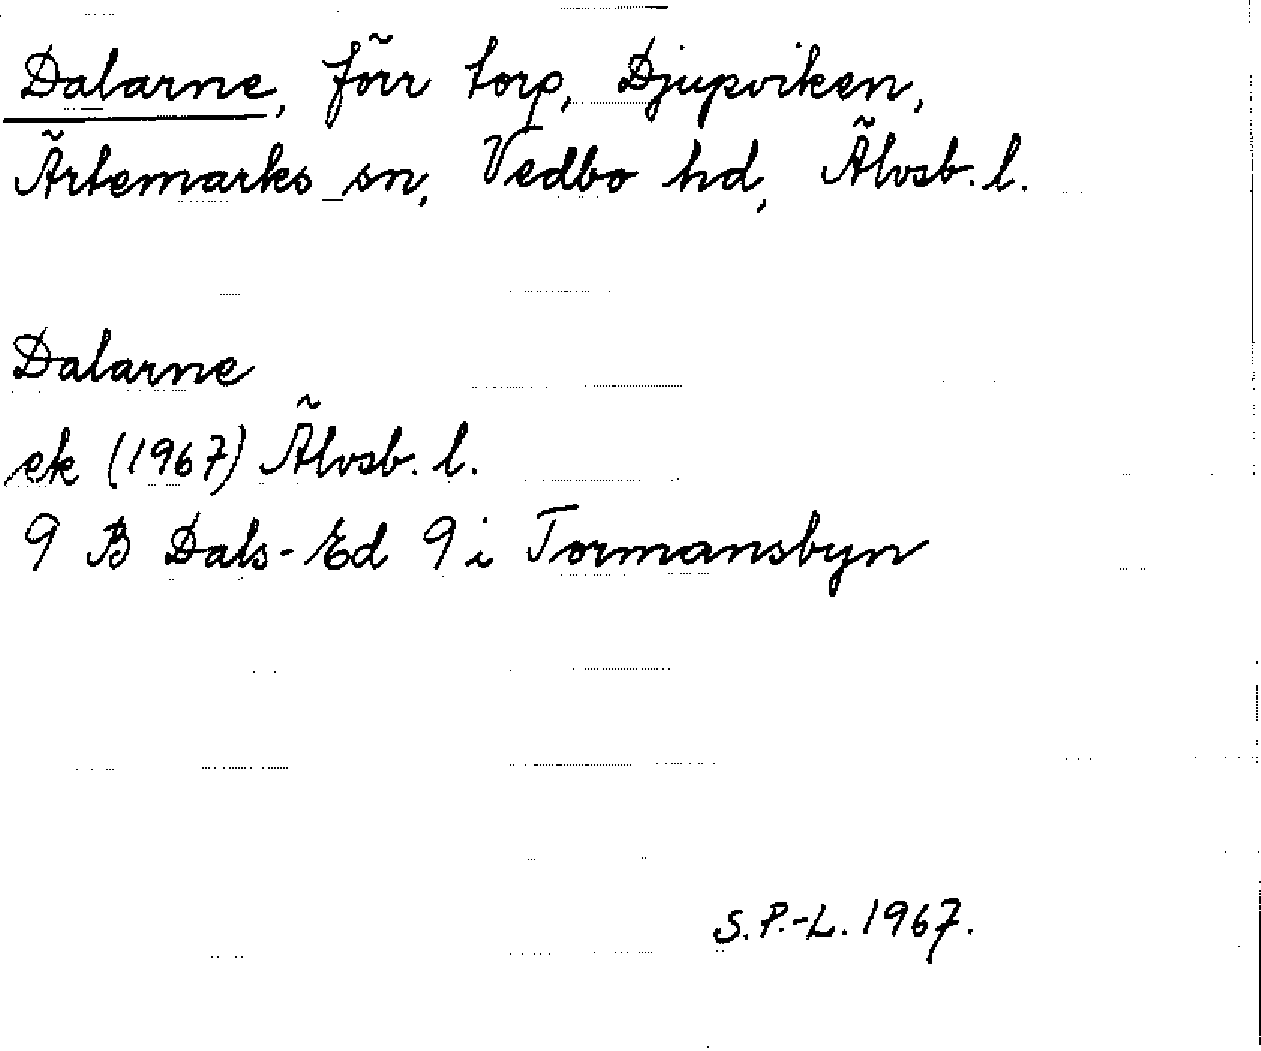 Dalarne, förr torp, Djupviken,
Ärtemarks sn, Vedbo hd, Älvsb. l.
Dalarne
ek (1967) Älvsb. l.
9 B Dals-Ed 9 i Tormansbyn
S. P.-L. 1967.